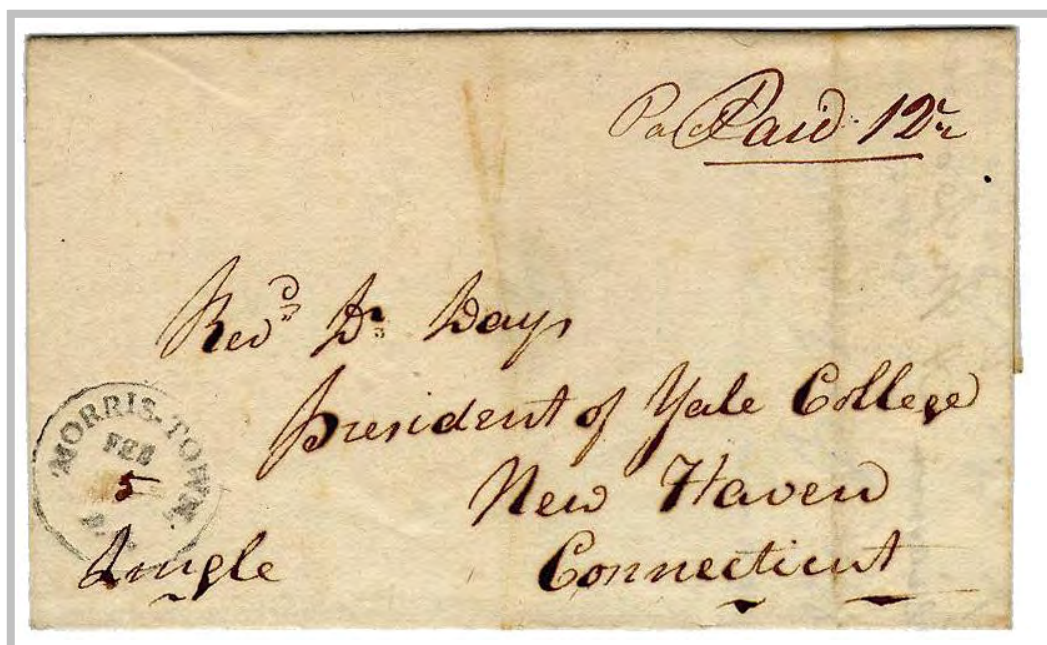 Paid Paid 12½
Revᵈ Dʳ Days
President of Yale College
New Haven
Connecticut
MORRIS-TOWN
FEB
5
N.J.
Single